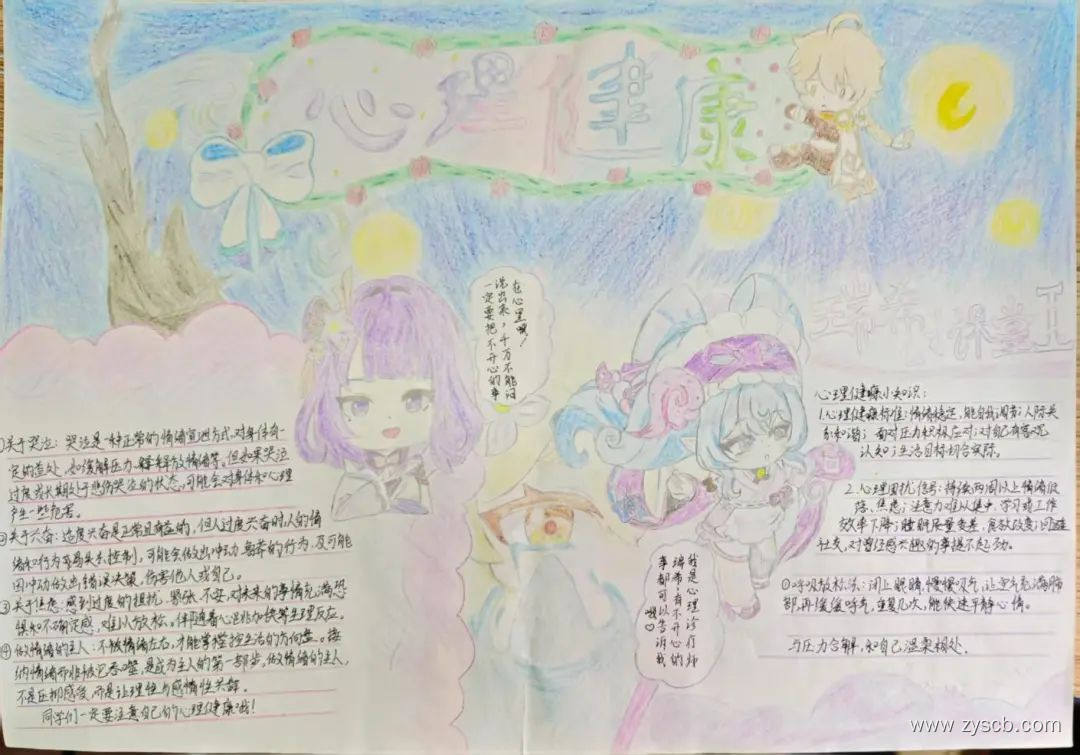 心理健康
瑞希课堂
一定要把不开心的事
说出来，千万不能闷
在心里哦！
①关于哭泣：哭泣是一种正常的情绪宣泄方式，对身体有一
定的益处，如缓解压力、释放情绪等。但如果哭泣
过度或长期处于悲伤哭泣的状态，可能会对身体和心理
产生一些危害。
②关于兴奋：适度兴奋是正常且有益的，但人过度兴奋时人的情
绪和行为容易失去控制，可能会做出冲动、鲁莽的行为，及可能
因冲动做出错误决策，伤害他人或自己。
③关于焦虑：感到过度的担忧、紧张、不安，对未来的事情充满恐
惧和不确定感，难以放松。伴随着心跳加快等生理反应。
④做情绪的主人：不被情绪左右，才能掌控生活的方向盘。接
纳情绪而非被它吞噬，是成为主人的第一步，做情绪的主人，
不是压抑感受，而是让理性与感情性共舞。
同学们一定要注意自己的心理健康哦！
我是心理诊疗师
瑞希，有不开心的
事都可以告诉我
哦♡
心理健康小知识：
1.心理健康标准：情绪稳定，能自我调节；人际关
系和谐；面对压力积极应对；对自己有客观
认知；生活目标切合实际。
2.心理困扰信号：持续两周以上情绪低
落、焦虑；注意力难以集中，学习或工作
效率下降；睡眠质量变差，食欲改变；回避
社交，对曾经感兴趣的事提不起劲。
①呼吸放松法：闭上眼睛，慢慢吸气，让空气充满腹
部，再缓缓呼气，重复几次，能快速平静心情。
与压力合解，和自己温柔相处。
www.zyscb.com